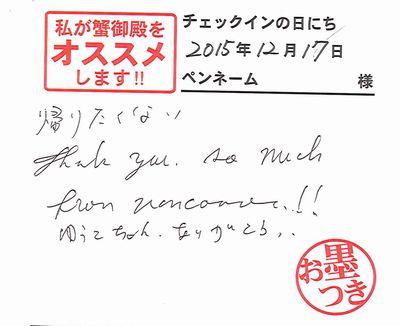 私が蟹御殿を
オススメ
します!!
チェックインの日にち
2015年12月17日
ペンネーム 様
帰りたくない
Thank you. so much
from vancouver.!!
ゆうこちゃん.ありがとう..
お墨つき